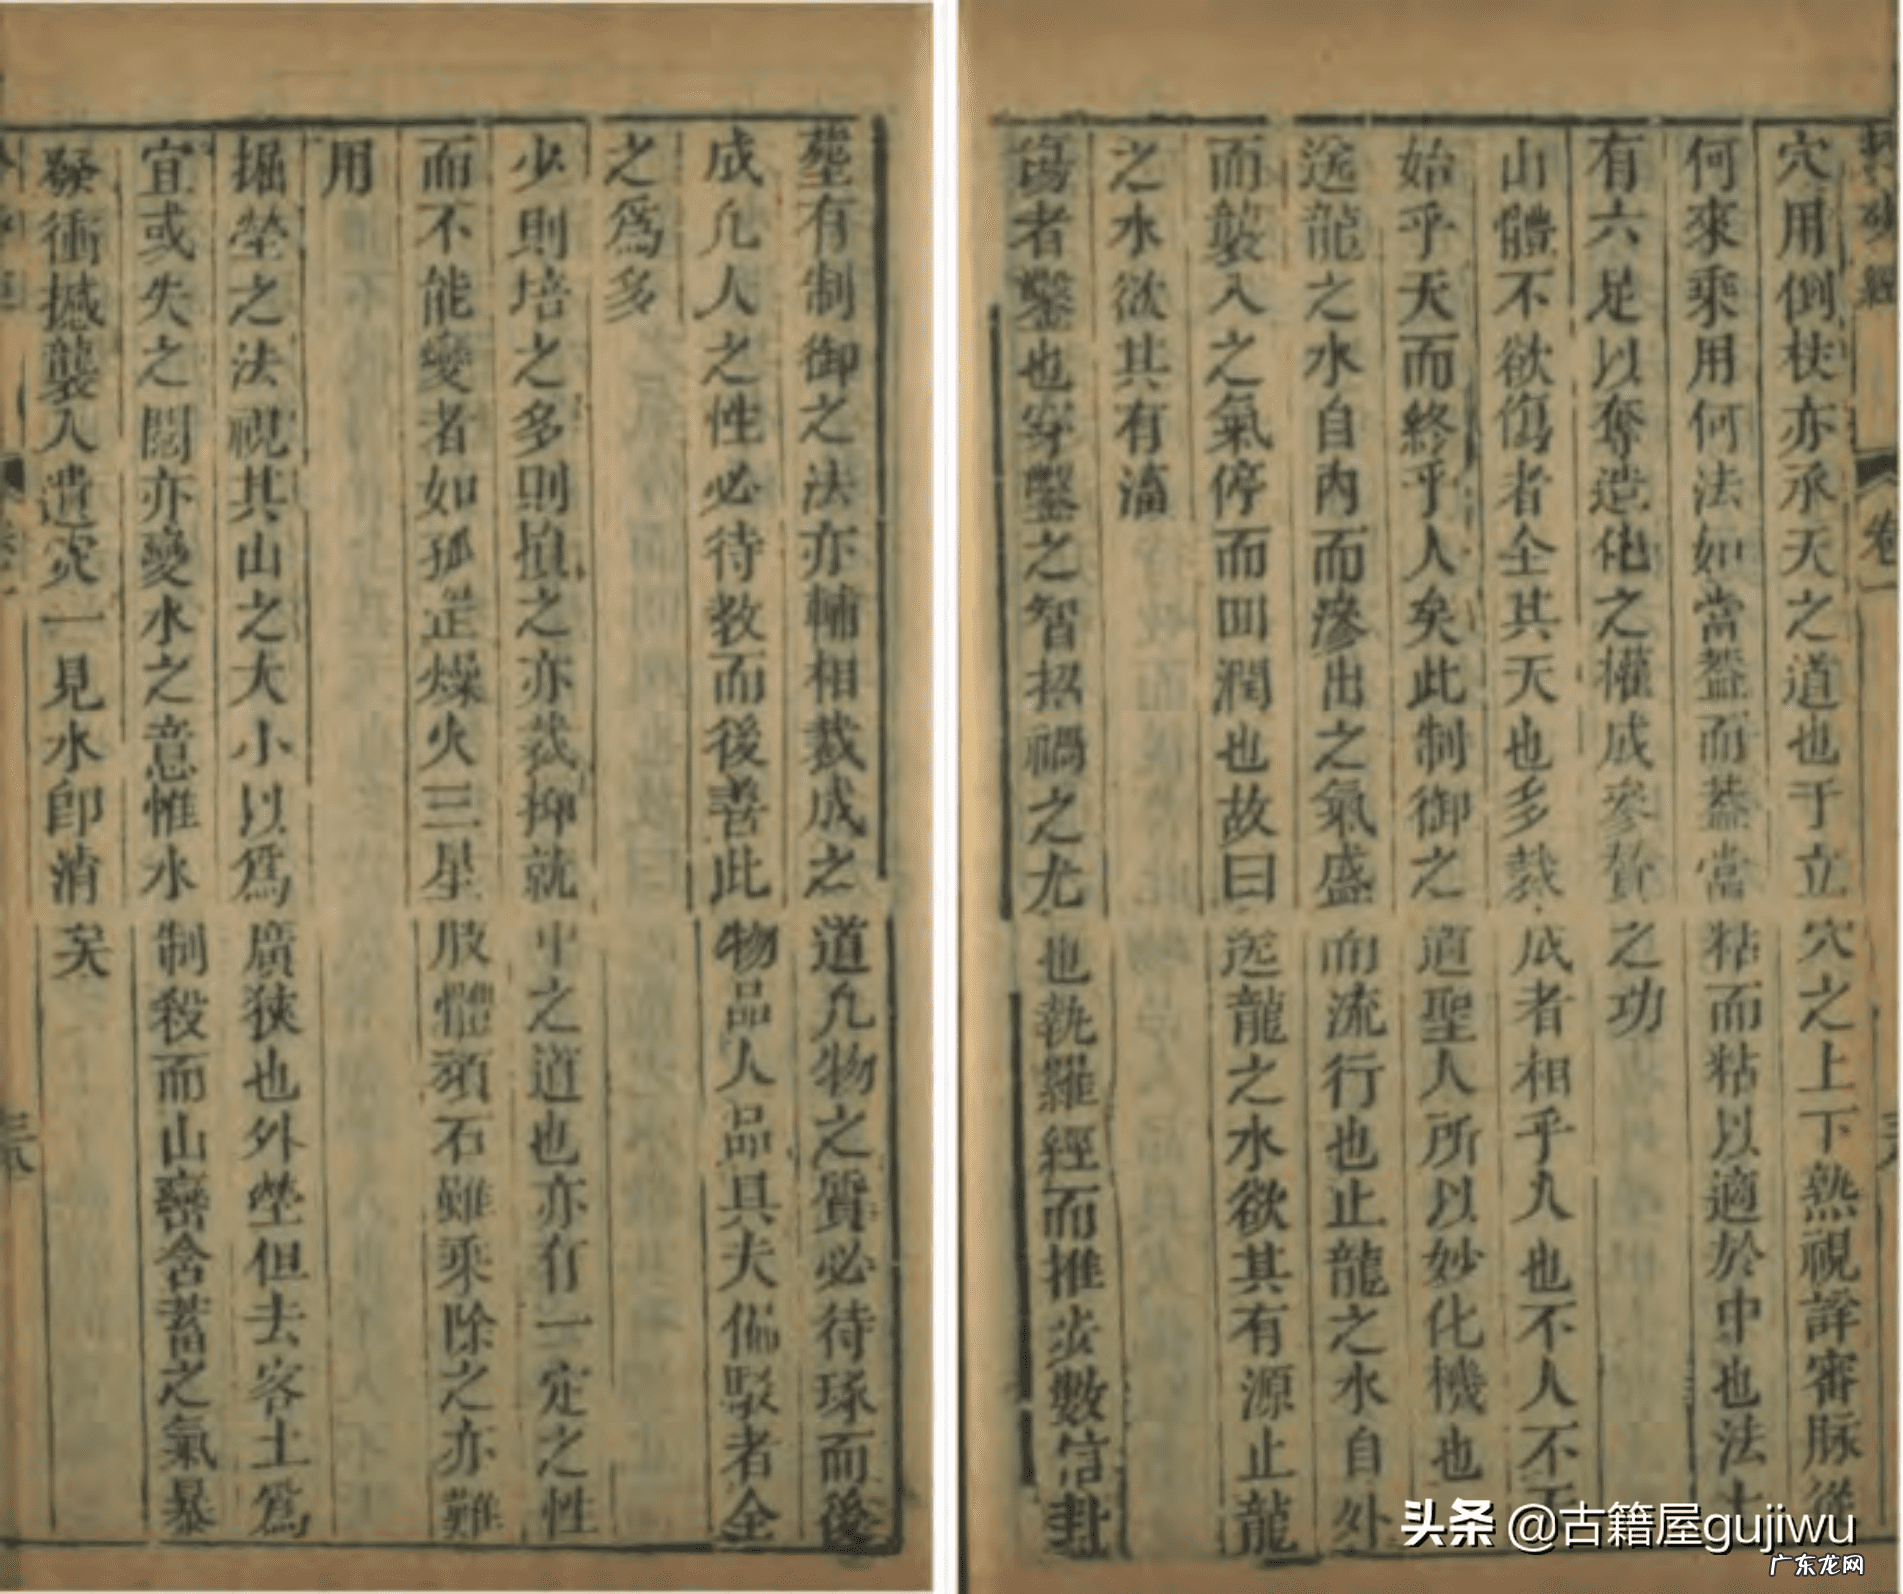 經
卷一
穴用倒杖亦承天之道也于立穴之上下熟視詳審脉從
何來乘用何法如當葢而葢當粘而粘以適於中也法
有六足以奪造化之權成參贊之功
山體不欲傷者全其天也多裁成者相乎人也不人不天
始乎天而終乎人矣此制御之道聖人所以妙化機也
送龍之水自內而滲出之氣盛而流行也止龍之水自外
而襲入之氣停而回潤也故曰送龍之水欲其有源止龍
之水欲其有
傷者鑿也穿鑿之智招禍之尤也執羅經而推步數信卦
塋有制御之法亦輔相裁成之道凡物之質必待琢而後
成凡人之性必待教而後善此物品人品具夫偏駁者全
之爲多
少則培之多則損之亦裁抑就中之道也亦有一定之性
而不能變者如孤罡燥火三星肢體頑石雖乘除之亦難
用
掘塋之法視其山之大小以爲廣狹也外塋但去客土爲
宜或失之闊亦變水之意惟水制殺而山巒含蓄之氣暴
疑衝撼襲入遺穴一見水即消矣
头条 @古籍屋gujiwu
广东龙网